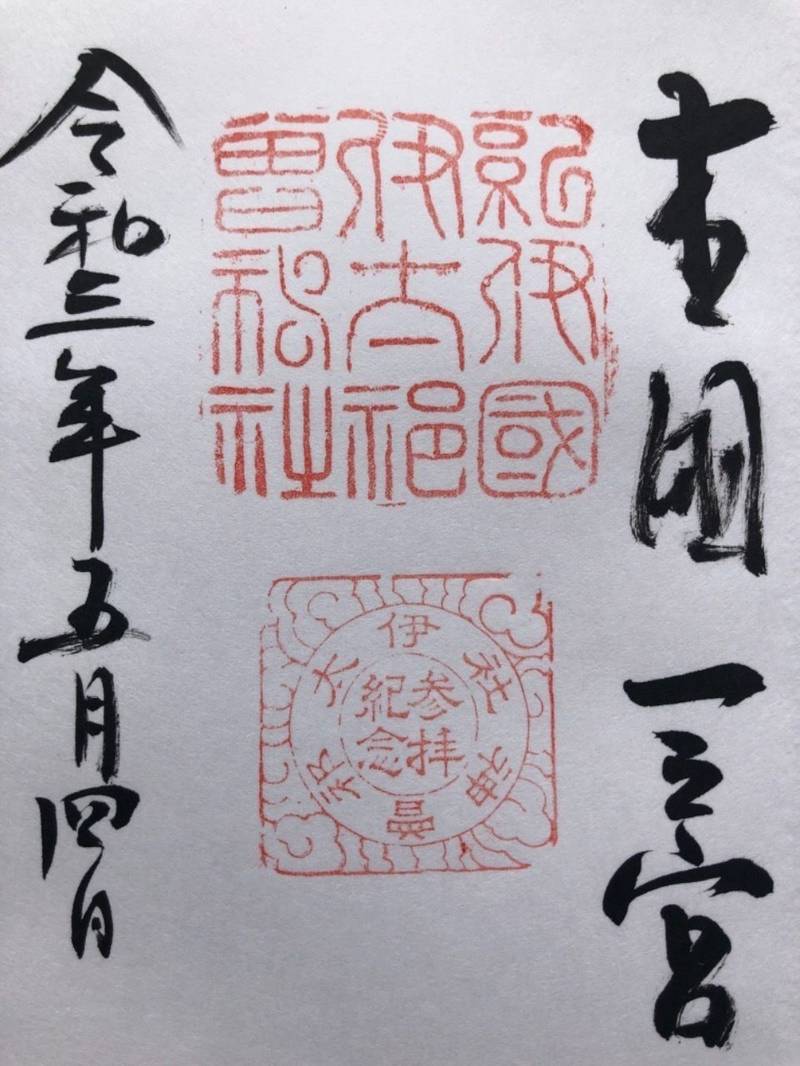 国一之宮
紀伊國
伊太祁
曽神社
伊太祁曽神社
参拝
紀念
令和三年五月四日